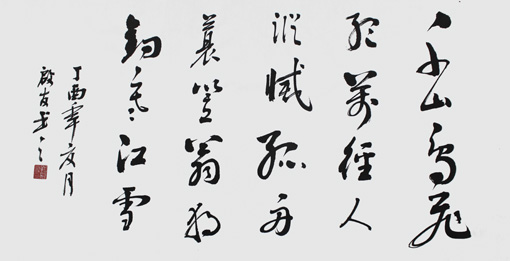 千山鳥飛
絕萬徑人
蹤滅孤舟
蓑笠翁独
釣寒江雪
丁酉年夏月